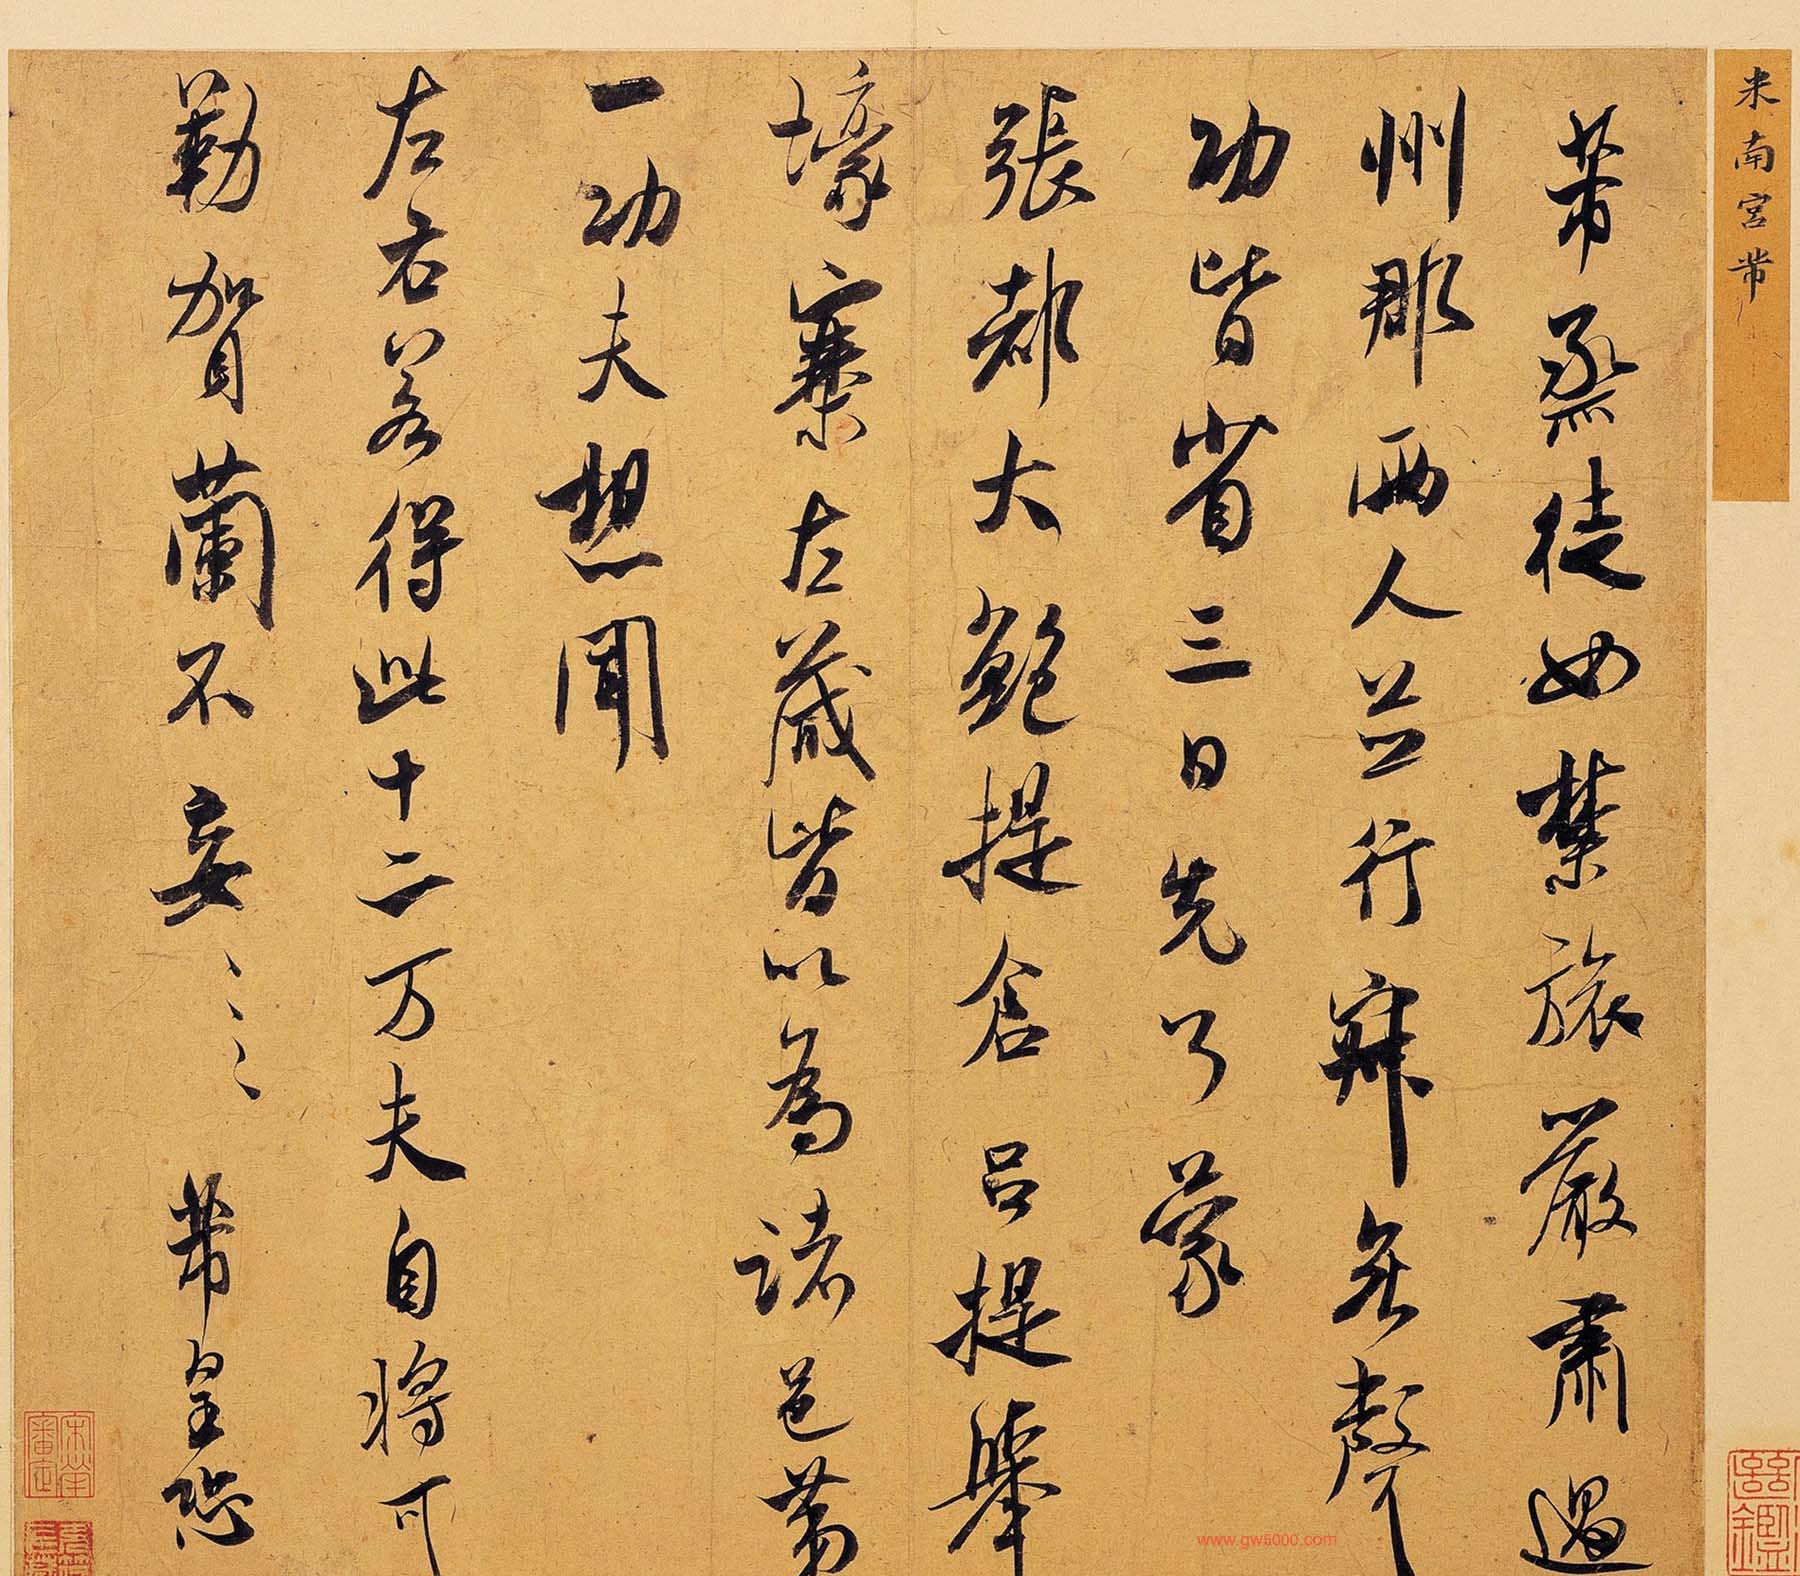 米南宮帖
芾烝徒如禁旅嚴肅過
州郡兩人並行寂無聲
功皆省三日先了蒙
張都大鮑提倉呂提舉
壕寨左藏皆以為諸邑第
一功夫想聞
左右若得此十二万夫自將可
勒賀蘭不妄〻〻芾皇恐
www.gw5000.com